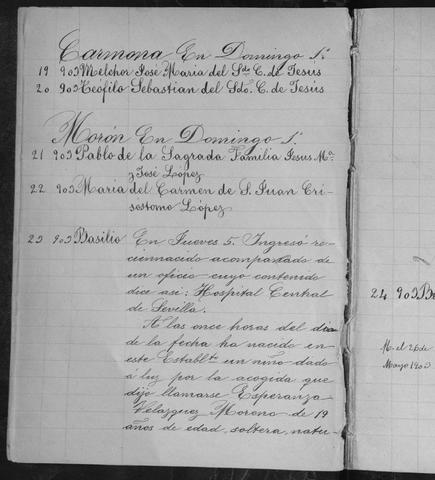 Carmona En Domingo 1º
19 903 Melchor José María del Sdo C. de Jesús
20 903 Teófilo Sebastian del Sdo. C. de Jesús
Morón En Domingo 1º
21 903 Pablo de la Sagrada Familia Jesus Mª
y José López
22 903 María del Carmen de S. Juan Cri-
sostomo López
23 903 Basilio En Jueves 5. Ingresó re-
ciennacido acompañado de
un oficio cuyo contenido
dice asi: Hospital Central
de Sevilla.
A las once horas del dia
de la fecha ha nacido en
este Establto un niño dado
á luz por la acogida que
dijo llamarse Esperanza
Velazquez Moreno de 19
años de edad, soltera, natu-
24 903 B
M. el 26 de
Mayo 1903